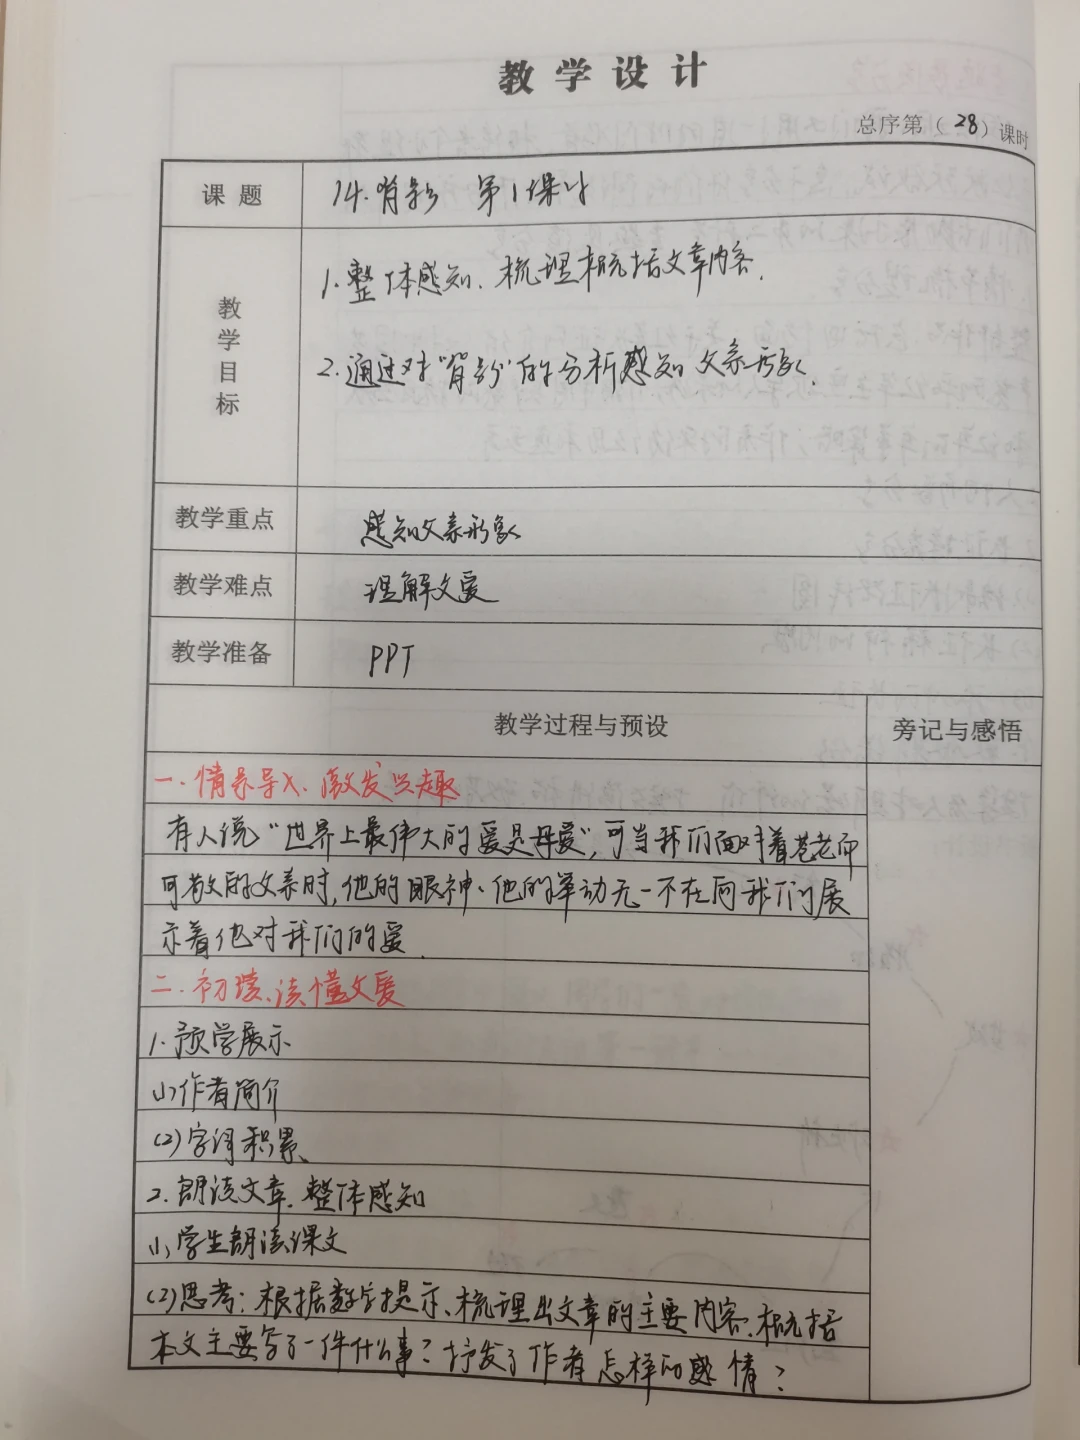 教学设计
总序第（28）课时
课题 14.背影 第1课时
教学目标
1.整体感知、梳理概括文章内容.
2.通过对"背影"的分析感知父亲形象.
教学重点 感知父亲形象
教学难点 理解父爱
教学准备 PPT
教学过程与预设 旁记与感悟
一.情景导入、激发兴趣
有人说"世界上最伟大的爱是母爱",可当我们面对着苍老而
可敬的父亲时,他的眼神、他的举动无一不在向我们展
示着他对我们的爱.
二.初读、读懂父爱
1.预学展示
(1)作者简介
(2)字词积累、
2.朗读文章、整体感知
(1)学生朗读课文
(2)思考:根据数字提示、梳理出文章的主要内容、概括
本文主要写了一件什么事?抒发了作者怎样的感情?